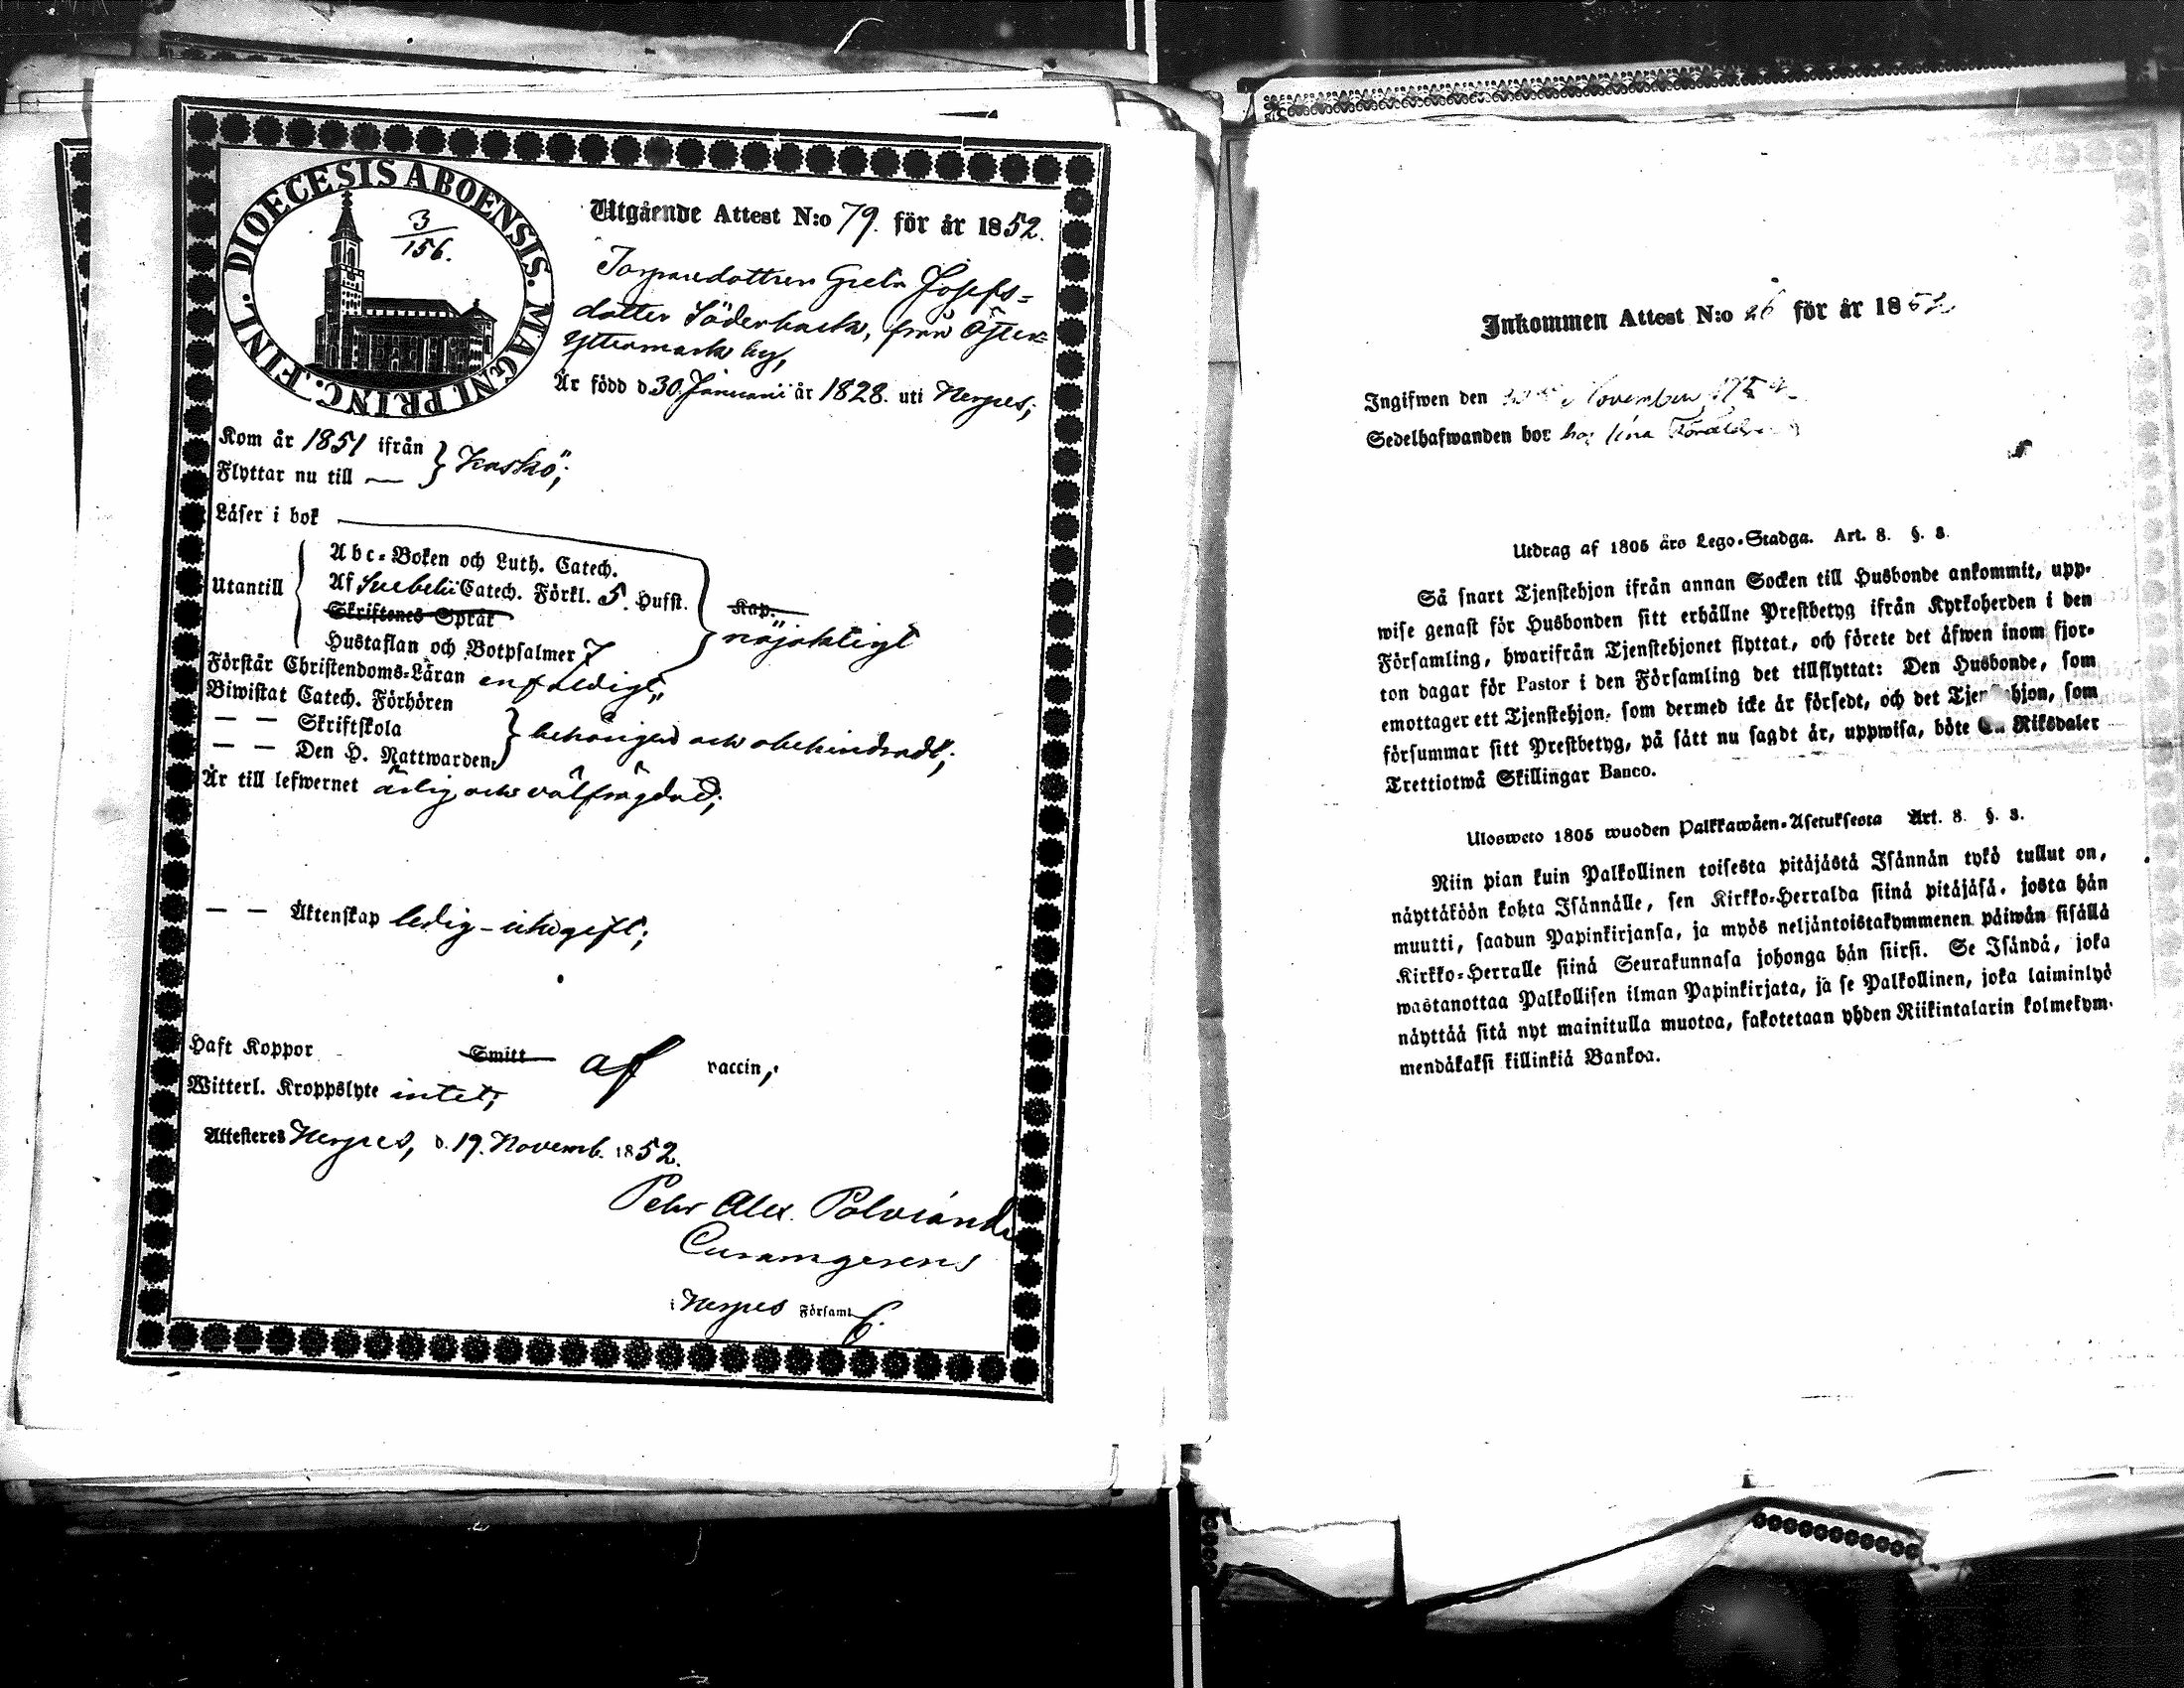 DIOECESIS ABOENSIS. MAGNI PRINC. FINL.
3
156.
Utgående Attest N:o 79. för år 1852.
Torparedottren Greta Josefs-
dotter Söderback, från Öfter-
yttermark by,
Är född d 30. Januarii år 1828. uti Nerpes;
Kom år 1851 ifrån
Flyttar nu till —
Kaskö;
Läser i bok
Utantill
Abc-Boken och Luth. Catech.
Af Svebelii Catech. Förkl. 5. Hufst.
Skriftenes Språk
Hustaflan och Botpsalmer 7
Kap.
nöjaktigt
Förstår Christendoms-Läran enfaldigt,
Biwistat Catech. Förhören
— — Skriftskola
— — Den H. Nattwarden,
behörigen och obehindradt;
Är till lefwernet ärlig och välfrägdad;
— — Äktenskap ledig - och ogift;
Haft Koppor Smitt af vaccin,
Witterl. Kroppslyte intet;
Attesteres Nerpes, d. 19. Novemb. 1852.
Pehr Alex. Polviander
Curamgerens
i Nerpes Församl.
Inkommen Attest N:o 26 för år 1852
Ingifwen den November 1852
Sedelhafwanden bor hos sina Föräldrar
Utdrag af 1805 års Lego-Stadga. Art. 8. §. 3.
Så snart Tjenstehjon ifrån annan Socken till Husbonde ankommit, upp-
wise genast för Husbonden sitt erhållne Prestbetyg ifrån Kyrkoherden i den
Församling, hwarifrån Tjenstehjonet flyttat, och förete det äfwen inom fjor-
ton dagar för Pastor i den Församling det tillflyttat: Den Husbonde, som
emottager ett Tjenstehjon, som dermed icke är försedt, och det Tjenstehjon, som
försummar sitt Prestbetyg, på sätt nu sagdt är, uppwisa, böte En Riksdaler
Trettiotwå Skillingar Banco.
Ulosweto 1805 wuoden Palkkawäen-Asetuksesta Art. 8. §. 3.
Niin pian kuin Palkollinen toisesta pitäjästä Isännän tykö tullut on,
näyttäköön kohta Isännälle, sen Kirkko-Herralda siinä pitäjäsä, josta hän
muutti, saadun Papinkirjansa, ja myös neljäntoistakymmenen päiwän sisällä
Kirkko-Herralle siinä Seurakunnasa johonga hän siirsi. Se Isändä, joka
wastanottaa Palkollisen ilman Papinkirjata, ja se Palkollinen, joka laiminlyö
näyttää sitä nyt mainitulla muotoa, sakotetaan yhden Riikintalarin kolmekym-
mendäkaksi killinkiä Bankoa.